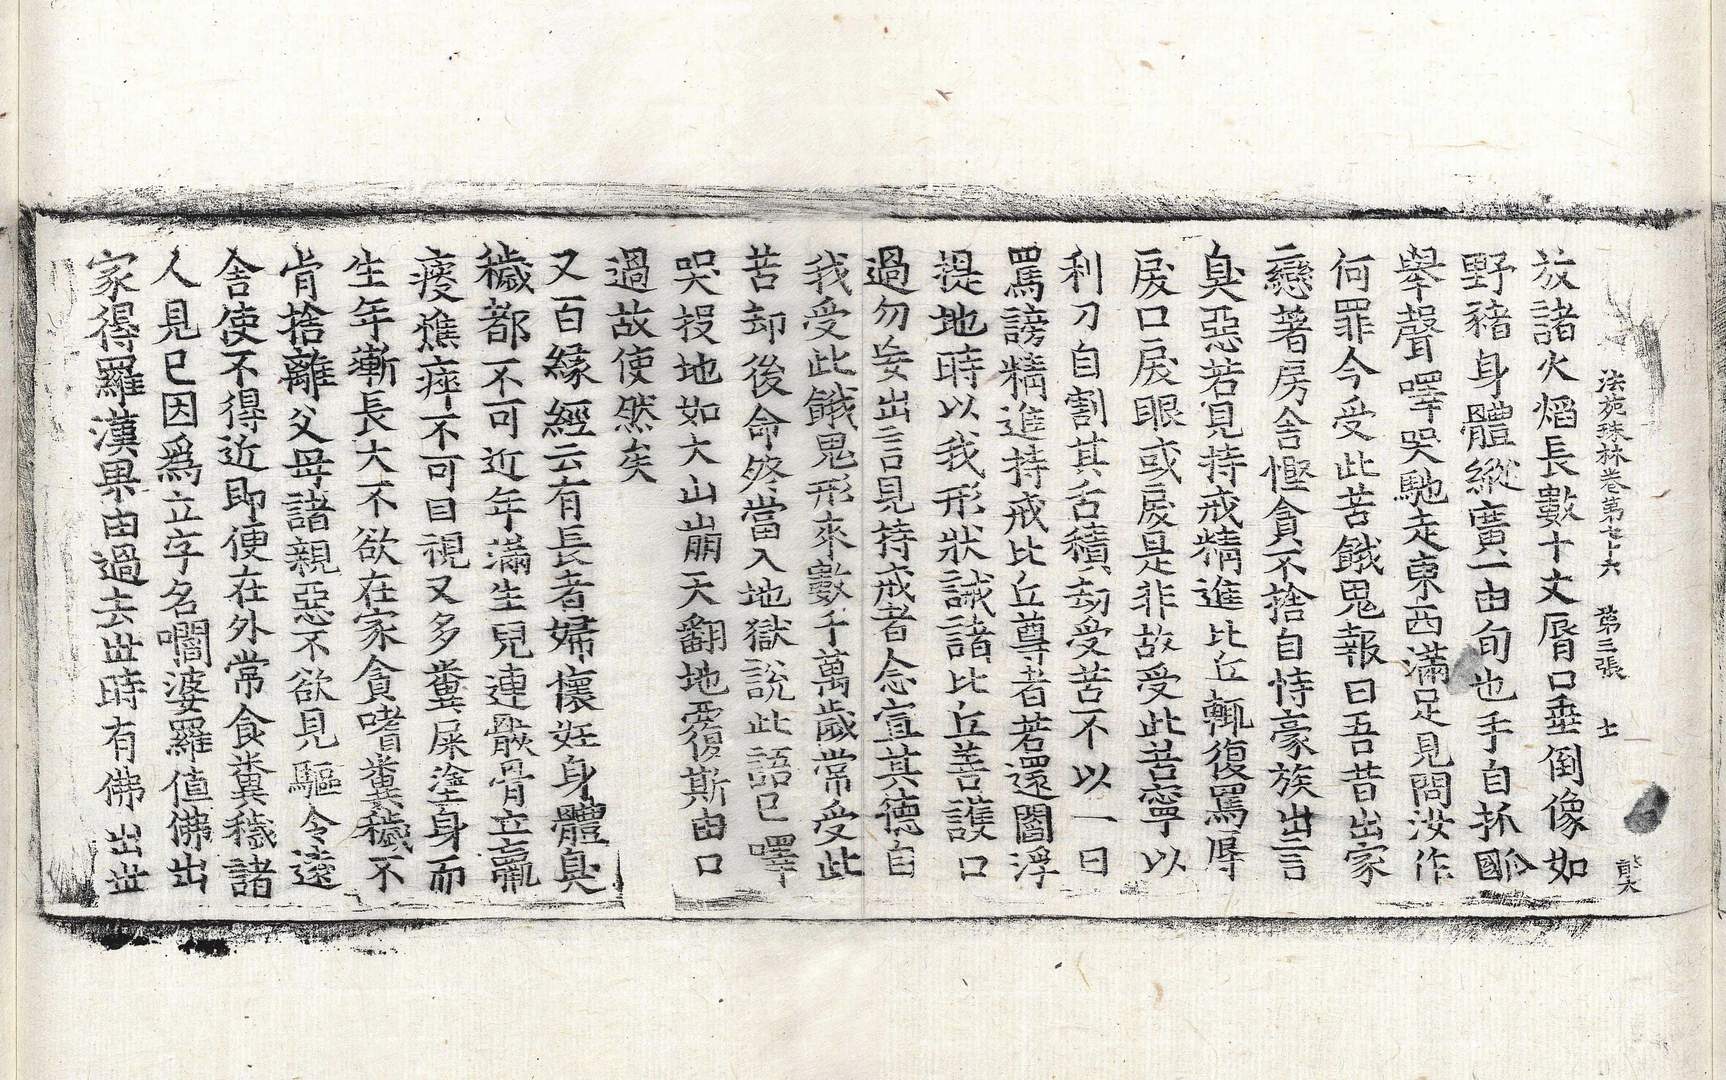 法苑珠林卷第七十六 第三張 士
放諸火熖長數十丈脣口垂倒像如
野豬身體縱廣一由旬也手自抓𭛌
舉聲嘷哭馳走東西滿足見問汝作
何罪今受此苦餓鬼報曰吾昔出家
戀著房舍慳貪不捨自恃豪族出言
臭惡若見持戒精進比丘輒復罵辱
戾口戾眼或戾是非故受此苦寧以
利刀自割其舌積劫受苦不以一日
罵謗精進持戒比丘尊者若還閻浮
提地時以我形狀誡諸比丘善護口
過勿妄出言見持戒者念宣其德自
我受此餓鬼形來數千萬歲常受此
苦却後命終當入地獄說此語已嘷
哭投地如大山崩天翻地覆斯由口
過故使然矣
又百緣經云有長者婦懷妊身體臭
穢都不可近年滿生兒連骸骨立羸
瘦燋瘁不可目視又多糞屎塗身而
生年漸長大不欲在家貪嗜糞穢不
肯捨離父母諸親惡不欲見驅令遠
舍使不得近即便在外常食糞穢諸
人見已因爲立字名嚪婆羅值佛出
家得羅漢果由過去世時有佛出世